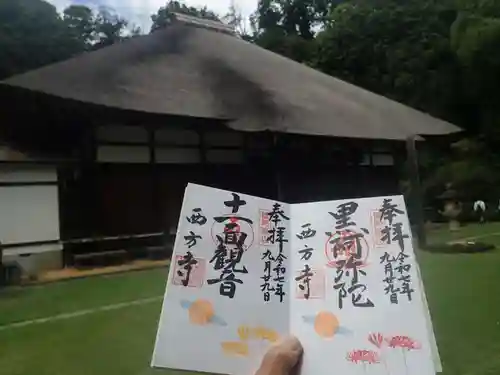 奉拝
令和七年
九月廿九日
里河弥陀
西方寺
奉拝
令和七年
九月廿九日
十一面観音
西方寺